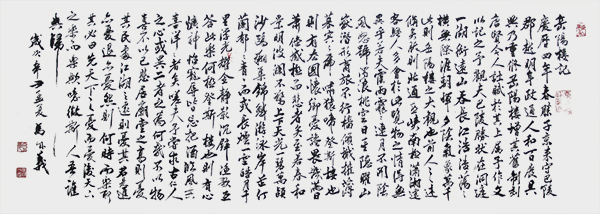 岳陽樓記
慶歷四年春滕子京謫守巴陵
郡越明年政通人和百廢具
興乃重修岳陽樓增其舊制刻
唐賢今人詩賦於其上屬予作文
以記之予觀夫巴陵勝狀在洞庭
一湖銜遠山吞長江浩浩湯湯
橫無際涯朝暉夕陰氣象萬千
此則岳陽樓之大觀也前人之述
備矣然則北通巫峽南極瀟湘遷
客騷人多會於此覽物之情得無
異乎若夫霪雨霏霏連月不開陰
風怒號濁浪排空日星隱曜山
岳潛形商旅不行檣傾楫摧薄暮
冥冥虎嘯猿啼登斯樓也
則有去國懷鄉憂讒畏譏滿目
蕭然感極而悲者矣至若春和
景明波瀾不驚上下天光一碧萬頃
沙鷗翔集錦鱗游泳岸芷汀
蘭郁郁青青而或長煙一空皓月千
里浮光躍金靜影沉璧漁歌互
答此樂何極登斯樓也則有心
曠神怡寵辱偕忘把酒臨風其
喜洋洋者矣嗟夫予嘗求古仁人
之心或異二者之為何哉不以物
喜不以己悲居廟堂之高則憂
其民處江湖之遠則憂其君是進
亦憂退亦憂然則何時而樂耶
其必曰先天下之憂而憂後天下
之樂而樂歟噫微斯人吾誰
與歸
歲次